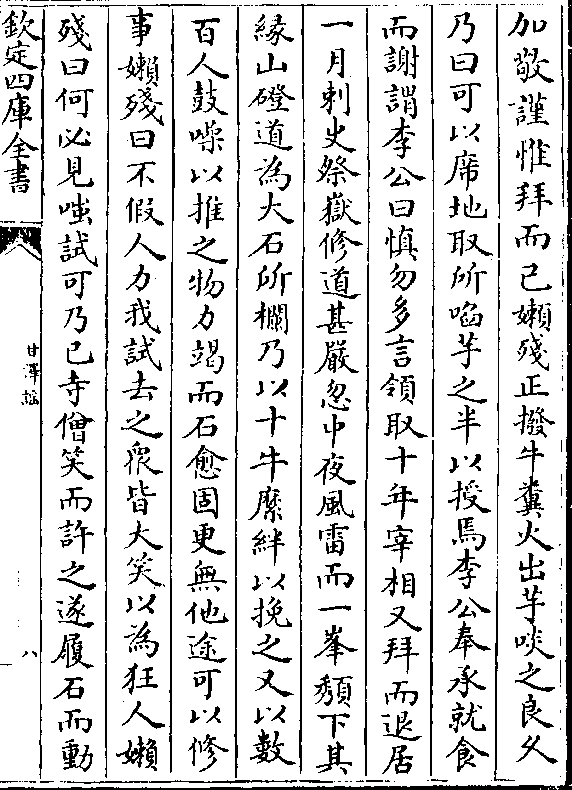 加敬謹惟拜而已嬾殘正撥牛糞火出芋啖之良久
乃曰可以席地取所啗芋之半以授焉李公奉承就食
而謝謂李公曰慎勿多言領取十年宰相又拜而退居
一月刺史祭嶽修道甚嚴忽中夜風雷而一峯頽下其
緣山磴道為大石所欄乃以十牛縻絆以挽之又以數
百人鼓噪以推之物力竭而石愈固更無他途可以修
事嬾殘曰不假人力我試去之衆皆大笑以為狂人嬾
殘曰何必見嗤試可乃已寺僧笑而許之遂履石而動
欽定四庫全書
甘澤謠
八